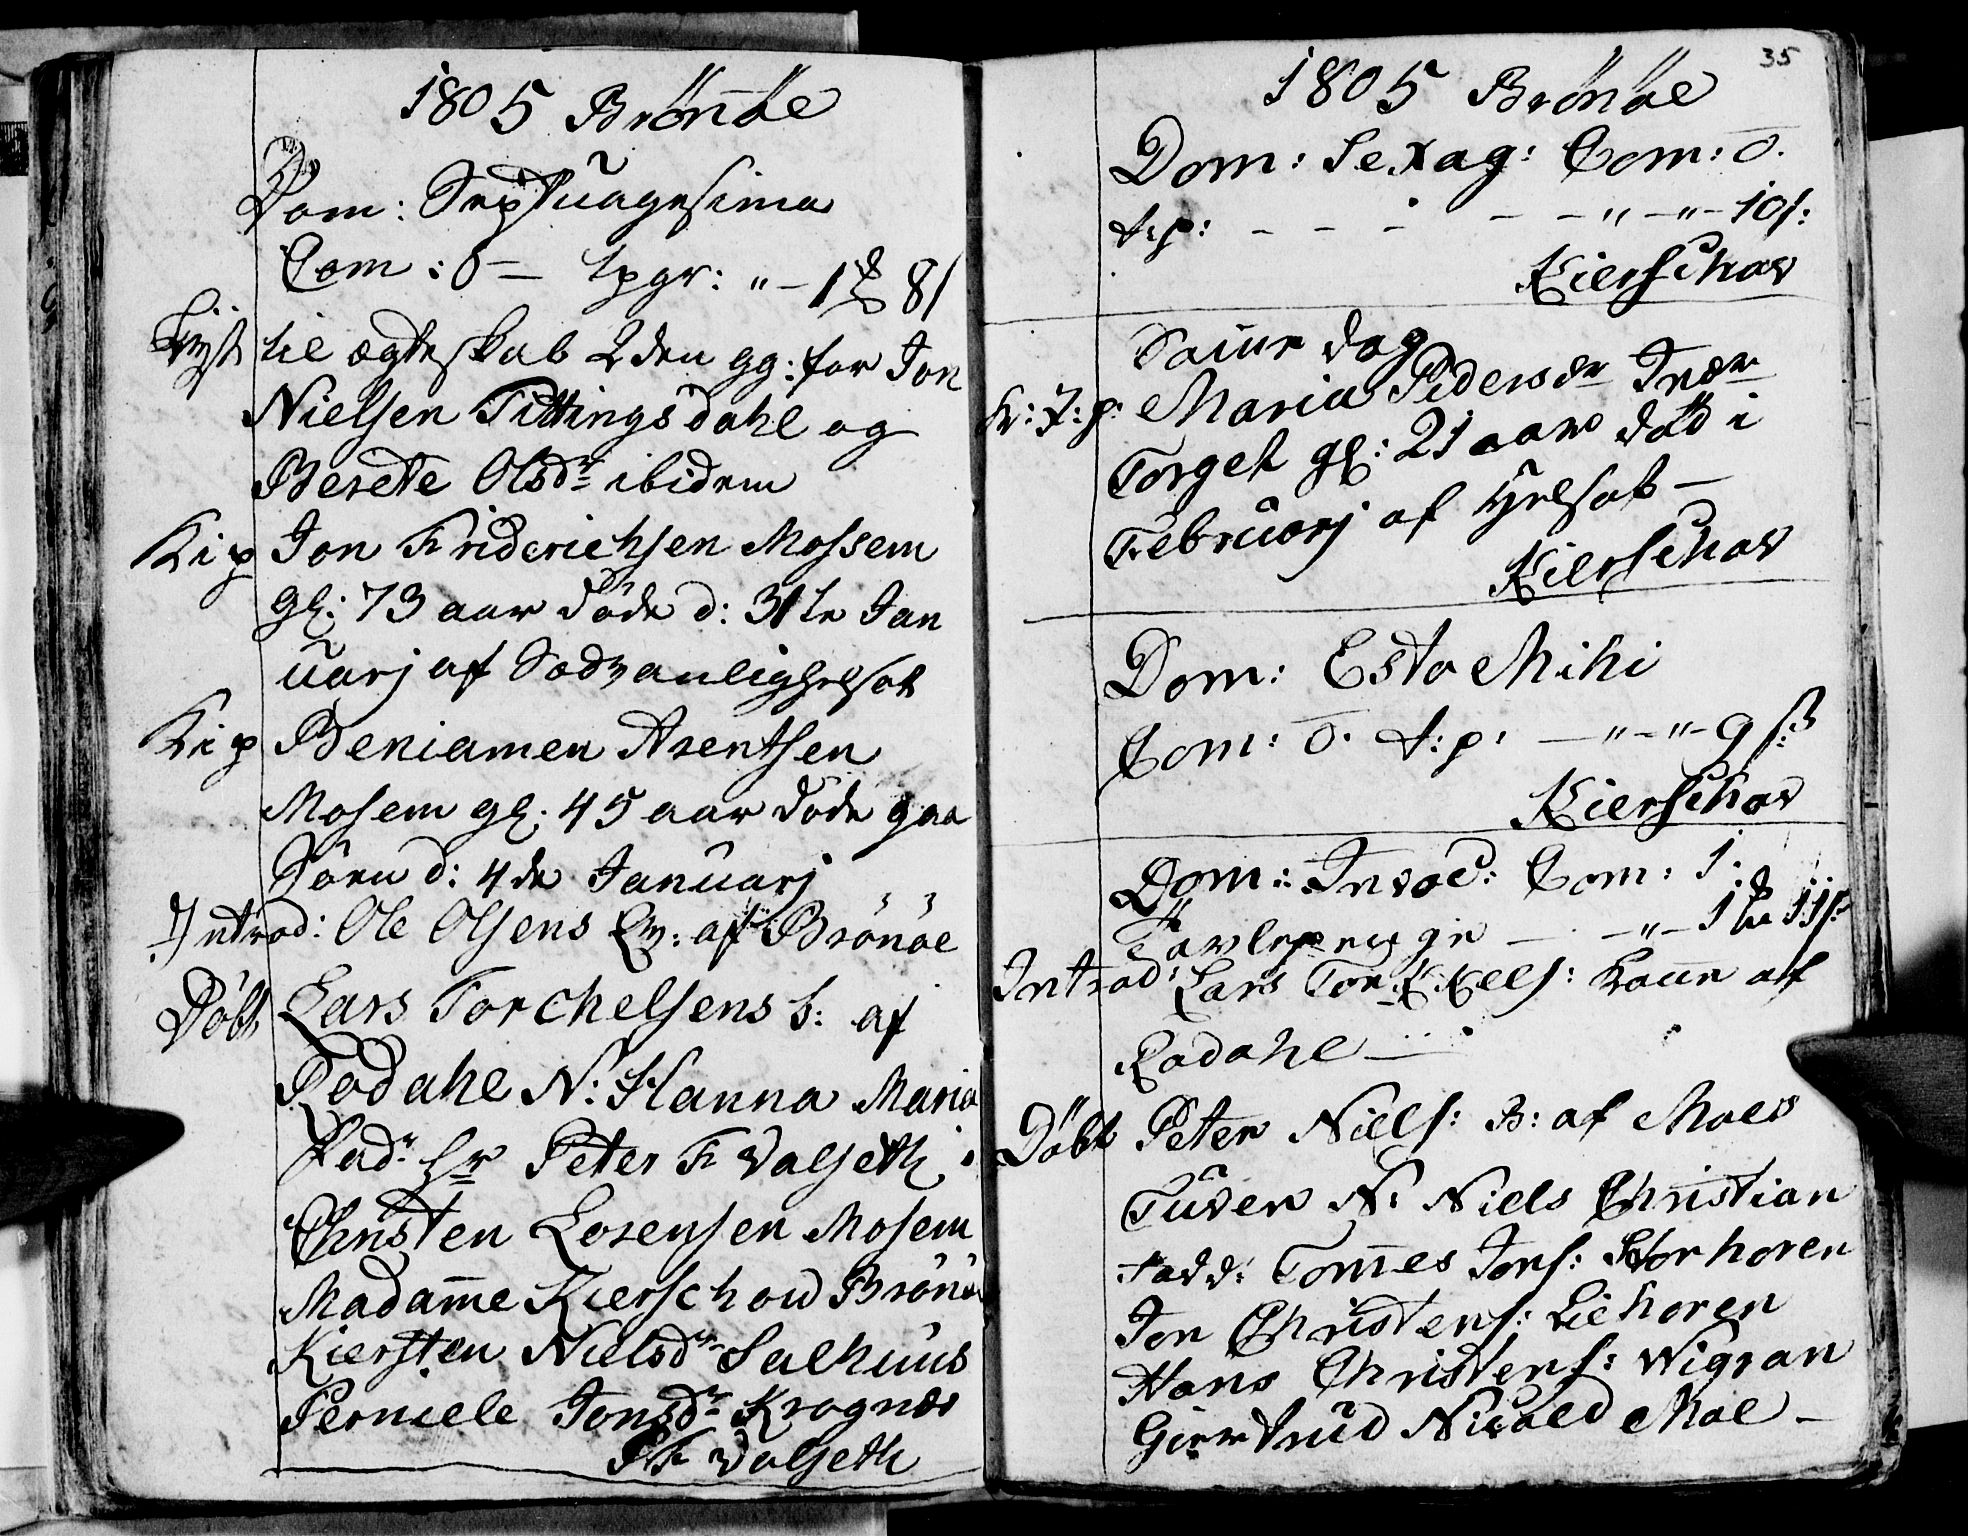 1805 Brönöe
Dom: Septuagesima
Com: 0 — tpgr: " – 1 8
Lyst til ægteskab 2den gg: for Jon
Nielsen Tittingsdahl og
Berete Olsdr ibidem
K i p Jon Friderichsen Mossem
gl: 73 aar döde d: 31te Jan
uarj af
K i p Beniamen Arentsen
Mosem gl: 45 aar döde paa
Söen d: 4de Januarj
Introd: Ole Olsens Qv: af Brönöe
Döbt Lars Torchelsens b: af
Rodahl N: Hanna Maria
Fad: Hr Peter F Valseth
Christen Lorensen Mosem
Madam̄e Kierschow Brönö
Kiersten Nielsdr Salhuus
Perniele Jonsdr Krognæs
P F Valseth
35
1805 Brönöe
Dom: Sexag: Com: 0.
t:p: – – – – – " – " – 10 s:
Kierschow
Sam̄e dag
K: I: p: Maria Pedersdr Inder
Torget gl: 21 aar död i
Februarj af
Kierschow
Dom: Esto Mihi
Com: 0. t:p: — " – " – 9 s:
Kierschow
Dom: Invoc: Com: 1.
Tavlepenge — – " – 1 11 s:
Introd: Lars Torkels: Kone af
Rodahl —
Döbt Peter Niels: B: af Moe
N: Niels Christian
Fadd: Tom̄es Jons: Horhoren
Jon Christens: Liehoren
Hans Christens: Wigran
Giertrud Moe –